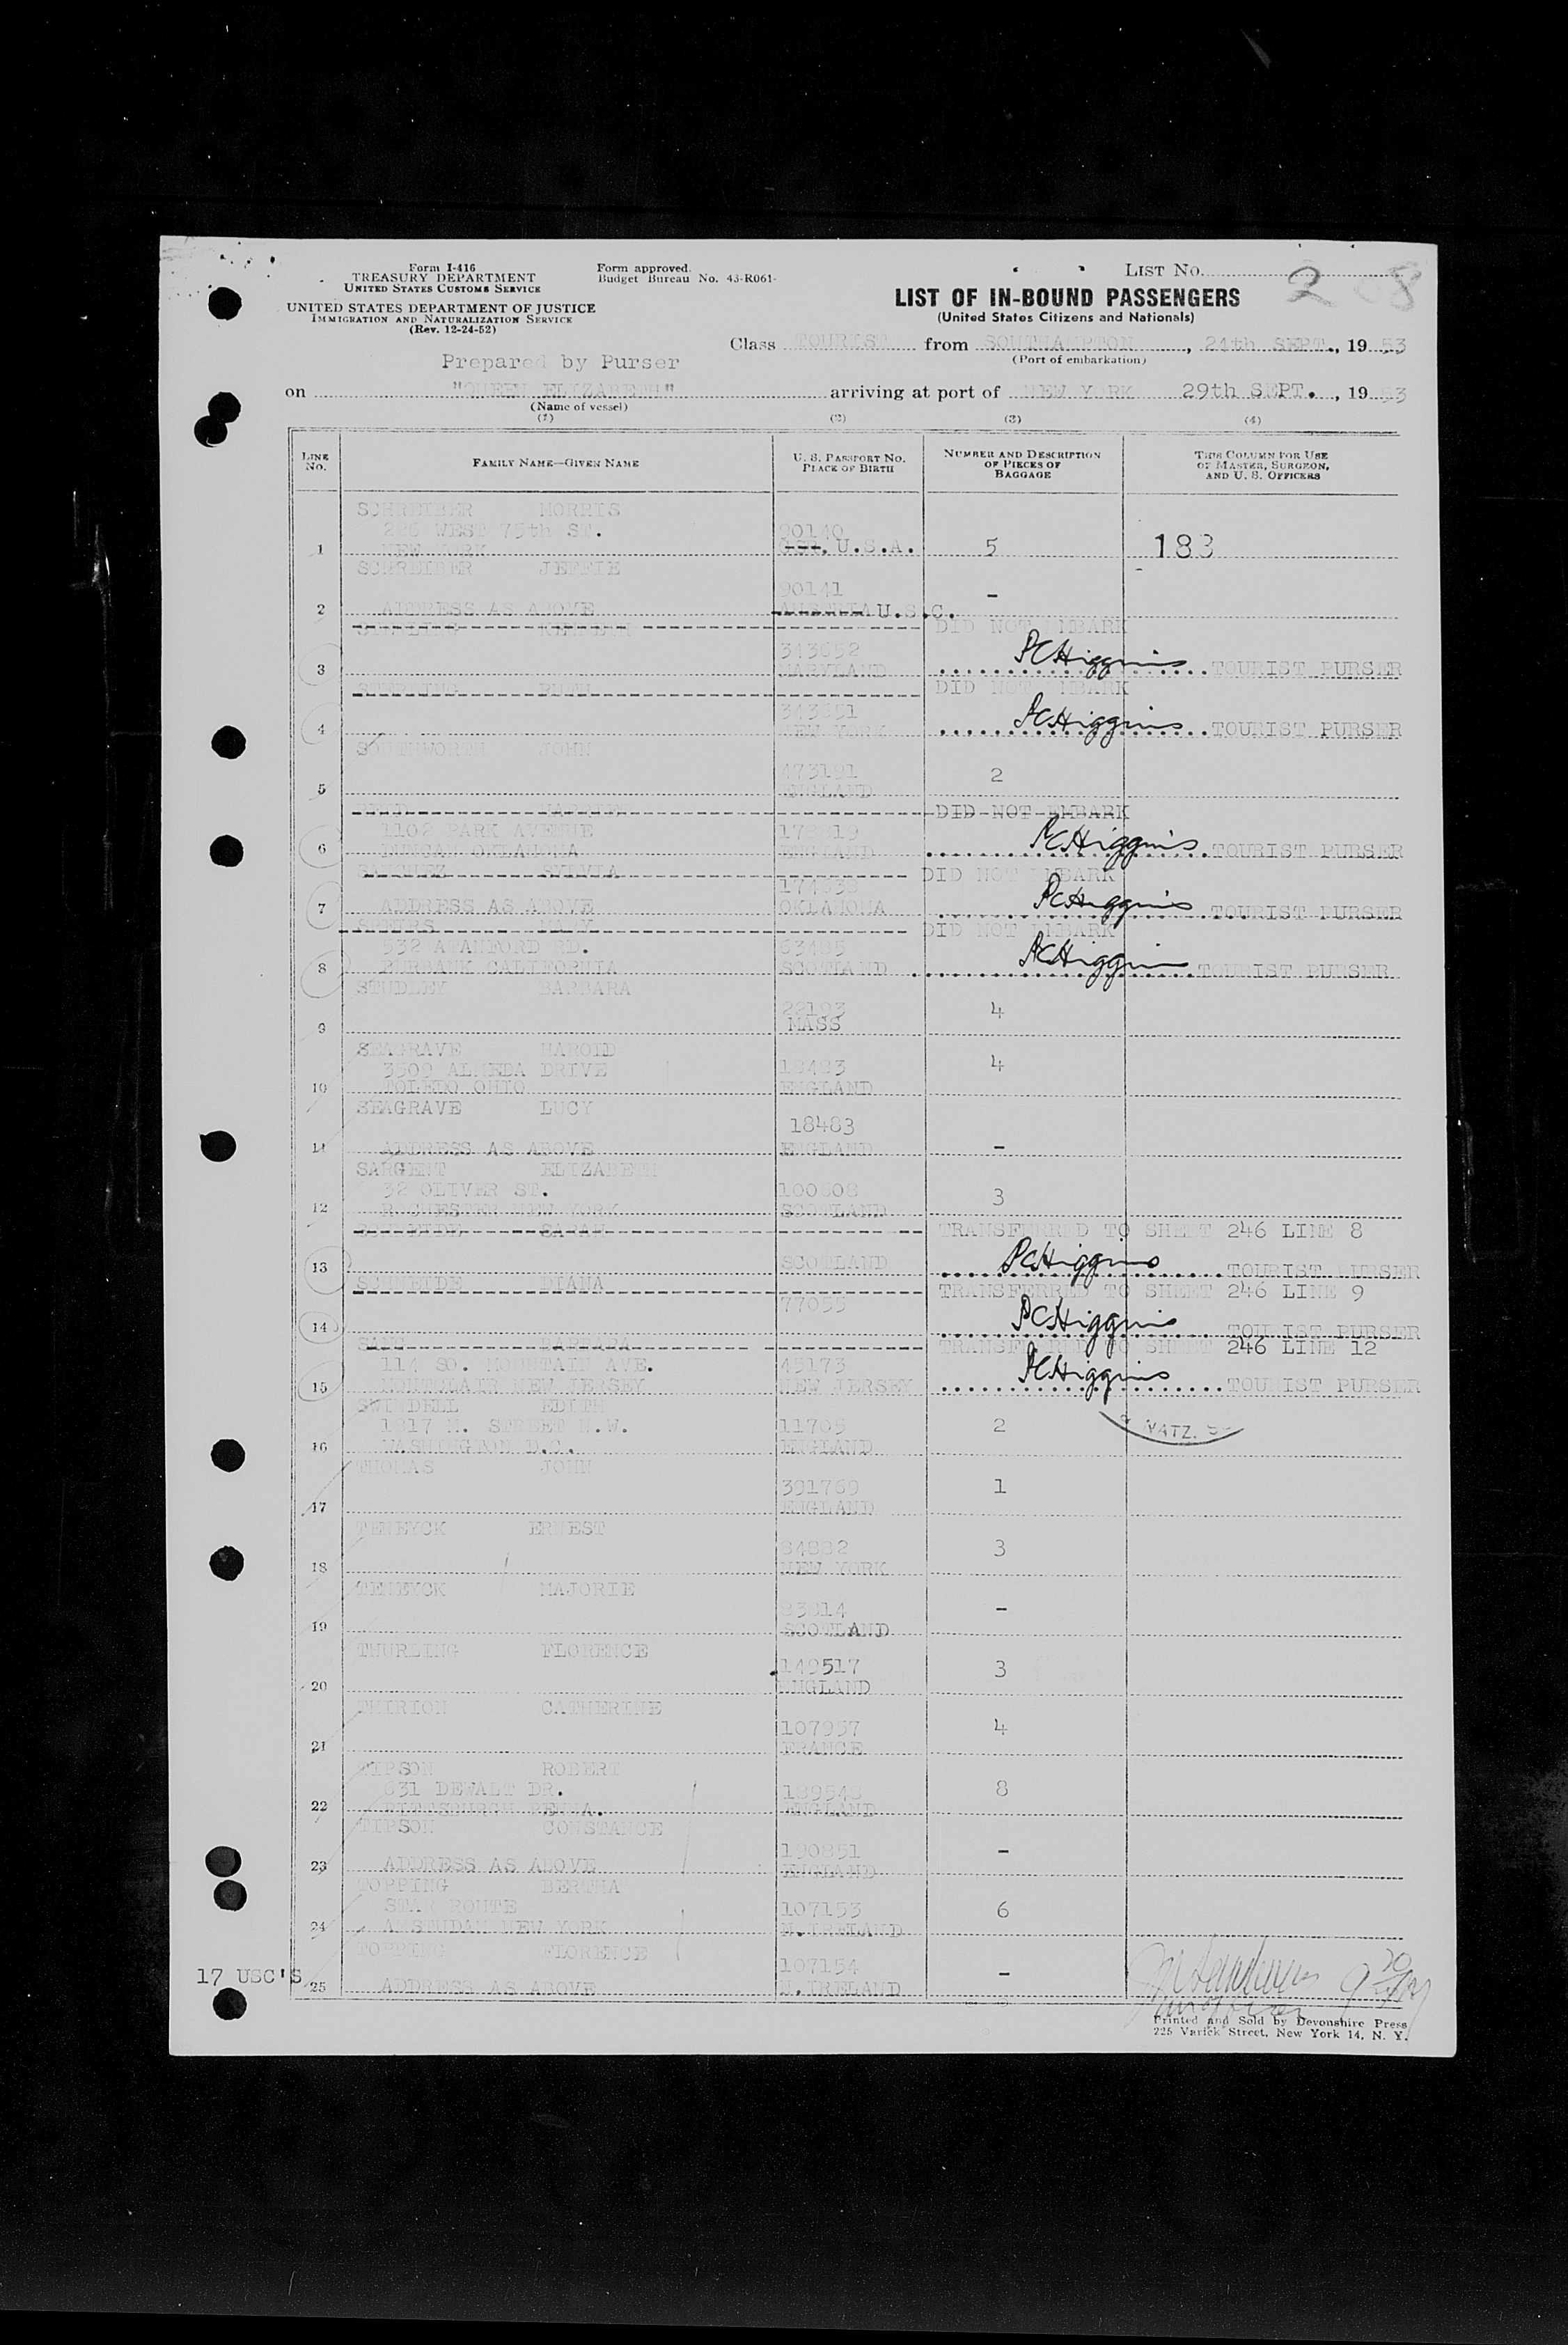 Form I-416
TREASURY DEPARTMENT
UNITED STATES CUSTOMS SERVICE
UNITED STATES DEPARTMENT OF JUSTICE
IMMIGRATION AND NATURALIZATION SERVICE
(Rev. 12-24-52)
Form approved.
Budget Bureau No. 43-R061-
LIST No. 2 8
LIST OF IN-BOUND PASSENGERS
(United States Citizens and Nationals)
Class TOURIST from SOUTHAMPTON, 24th SEPT., 19 53
(Port of embarkation)
Prepared by Purser
on "QUEEN ELIZABETH" arriving at port of NEW YORK 29th SEPT., 19 53
(Name of vessel)
(1) (2) (3) (4)
LINE No. FAMILY NAME—GIVEN NAME U. S. PASSPORT NO. PLACE OF BIRTH NUMBER AND DESCRIPTION OF PIECES OF BAGGAGE THIS COLUMN FOR USE OF MASTER, SURGEON, AND U. S. OFFICERS
SCHREIBER MORRIS
226 WEST 75th ST. 90140
1 NEW YORK U.S.A. 5 183
SCHREIBER JEFFIE
90141 -
2 ADDRESS AS ABOVE U.S.C.
DID NOT EMBARK
343652 PCHiggins
3 MARYLAND TOURIST PURSER
RUTH DID NOT EMBARK
343651 PCHiggins
4 NEW YORK TOURIST PURSER
SOUTHWORTH JOHN
473191 2
5 ENGLAND
DID NOT EMBARK
1102 PARK AVENUE 178819 PCHiggins
6 OKLAHOMA ENGLAND TOURIST PURSER
SYLVIA DID NOT EMBARK
PCHiggins
7 ADDRESS AS ABOVE OKLAHOMA TOURIST PURSER
MARY DID NOT EMBARK
532 STANFORD RD. 63485 PCHiggins
8 BURBANK CALIFORNIA SCOTLAND TOURIST PURSER
STUDLEY BARBARA
22193 4
9 MASS
SEAGRAVE HAROLD
3509 ALMEDA DRIVE 18483 4
10 TOLEDO OHIO ENGLAND
SEAGRAVE LUCY
18483
11 ADDRESS AS ABOVE ENGLAND -
SARGENT ELIZABETH
32 OLIVER ST. 100808 3
12 ROCHESTER NEW YORK SCOTLAND
SARAH TRANSFERRED TO SHEET 246 LINE 8
PCHiggins
13 SCOTLAND TOURIST PURSER
DIANA TRANSFERRED TO SHEET 246 LINE 9
77055 PCHiggins
14 TOURIST PURSER
BARBARA TRANSFERRED TO SHEET 246 LINE 12
SO. MOUNTAIN AVE. 45173 PCHiggins
15 MONTCLAIR NEW JERSEY NEW JERSEY TOURIST PURSER
SWINDELL EDITH
1817 M. STREET N.W. 11705 2
16 WASHINGTON D.C. ENGLAND
THOMAS JOHN
391769 1
17 ENGLAND
TENEYCK ERNEST
84882 3
18 NEW YORK
TENEYCK MAJORIE
83814 -
19 SCOTLAND
THURLING FLORENCE
149517 3
20 ENGLAND
THIRION CATHERINE
107957 4
21 FRANCE
TIPSON ROBERT
631 DEWALT DR. 189548 8
22 PITTSBURGH PENNA. ENGLAND
TIPSON CONSTANCE
190851 -
23 ADDRESS AS ABOVE ENGLAND
TOPPING BERTHA
STAR ROUTE 107153 6
24 AMSTUDAM NEW YORK N.IRELAND
TOPPING FLORENCE
107154 -
17 USC'S 25 ADDRESS AS ABOVE N.IRELAND
Printed and Sold by Devonshire Press
225 Varick Street, New York 14, N. Y.